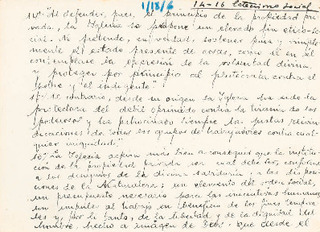 1/13/6 14-16 Catecismo social
14º Al defender, pues, el principio de la propiedad pri-
vada, la Iglesia se propone un elevado fin etico-so-
cial. No pretende, en verdad, sostener pura y simple-
mente el estado presente de cosas, como si en él
contemplase la expresión de la voluntad divina
y proteger por principio al plutócrata contra el
pobre y el indigente.
15º Al contrario, desde su origen la Iglesia ha sido la
protectora del debil oprimido contra la tiranía de los
poderosos y ha patrocinado siempre las justas reivin-
dicaciones de todos los grupos de trabajadores contra cual-
quier iniquidad.
16º La Iglesia aspira más bien a conseguir que la institu-
ción de la propiedad privada sea cual debe ser, conforme
a los designios de la divina sabiduría y a las disposi-
ciones de la Naturaleza: un elemento del orden social,
un presupuesto necesario para las iniciativas humanas,
un impulso al trabajo en beneficio de los fines tempora-
les y, por lo tanto, de la libertad y de la dignidad del
hombre, hecho a imagen de Dios, que desde el